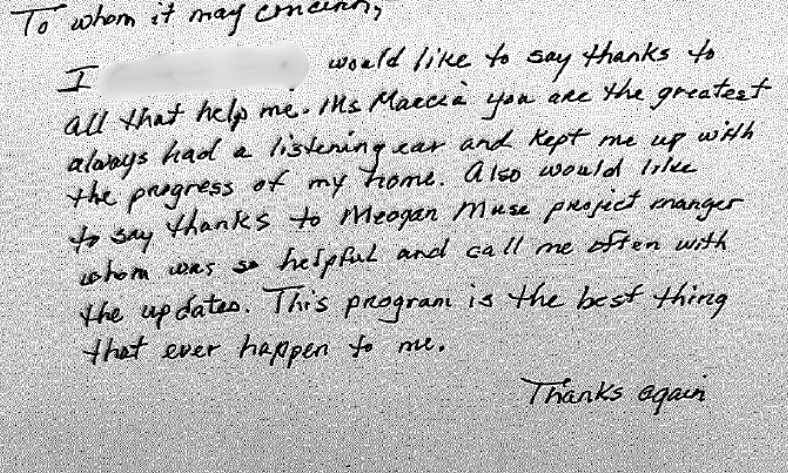 To whom it may concern,
I would like to say thanks to
all that help me. Ms Marcia you are the greatest
always had a listening ear and kept me up with
the progress of my home. Also would like
to say thanks to Meogan Muse project manger
whom was so helpful and call me often with
the updates. This program is the best thing
that ever happen to me.
Thanks again